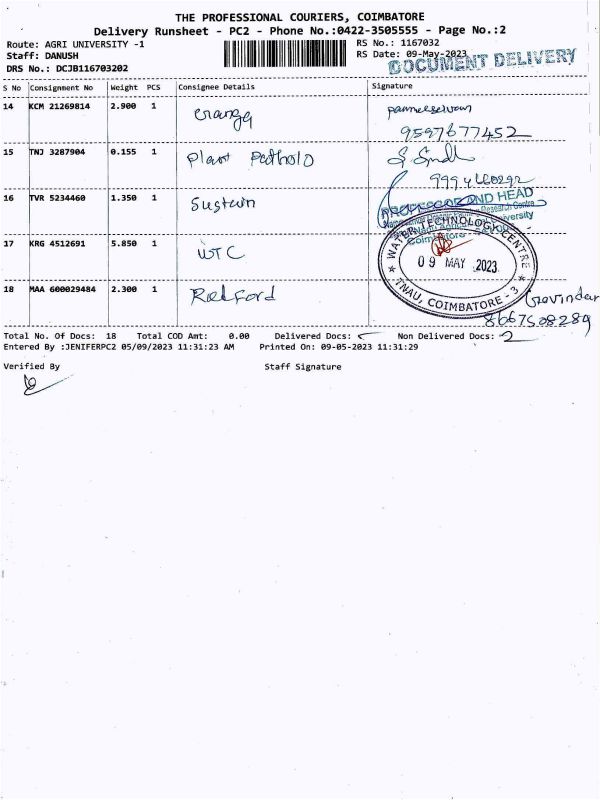 THE PROFESSIONAL COURIERS, COIMBATORE
Delivery Runsheet - PC2 - Phone No.:0422-3505555 - Page No.:2
Route: AGRI UNIVERSITY -1 RS No.: 1167032
Staff: DANUSH RS Date: 09-May-2023
DOCUMENT DELIVERY
DRS No.: DCJB116703202
S No Consignment No Weight PCS Consignee Details Signature
14 KCM 21269814 2.900 1
9597677452
15 TNJ 3287904 0.155 1 Plant Patholo
16 TVR 5234460 1.350 1 Sustain
PROFESSOR AND HEAD
17 KRG 4512691 5.850 1 WTC
WATER TECHNOLOGY CENTRE
09 MAY 2023
TNAU, COIMBATORE - 3
18 MAA 600029484 2.300 1 Rel Ford
Govindar
8667508289
Total No. Of Docs: 18 Total COD Amt: 0.00 Delivered Docs: Non Delivered Docs: 2
Entered By :JENIFERPC2 05/09/2023 11:31:23 AM Printed On: 09-05-2023 11:31:29
Verified By Staff Signature